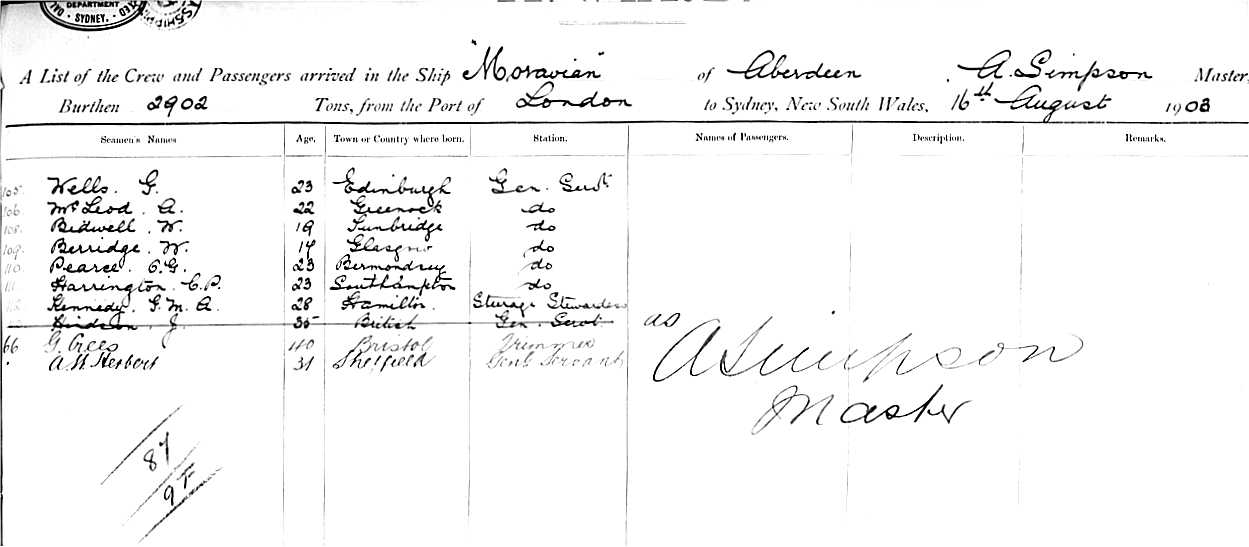 DEPARTMENT
SYDNEY.
A List of the Crew and Passengers arrived in the Ship "Moravian" of Aberdeen, A. Simpson Master,
Burthen 2902 Tons, from the Port of London to Sydney, New South Wales, 16th August 1908
Seamen's Names Age. Town or Country where born. Station. Names of Passengers. Description. Remarks.
105. Wells. G. 23 Edinburgh Gen. Servt
106 McLeod. A. 22 Greenock do
108. Bidwell. W. 19 Tunbridge do
109. Berridge. W. 19 Glasgow do
110 Pearce. C.G. 23 Bermondsey do
111 Harrington. C.P. 23 Southampton do
112 Kennedy. G.M.A. 28 Hamilton. Steerage Stewardess
Hindson. J. 35 British Gen. Servt
66 G. Rees 40 Bristol Trimmer
A.W. Herbert 31 Sheffield Genl Servant
A Simpson
Master
87
97